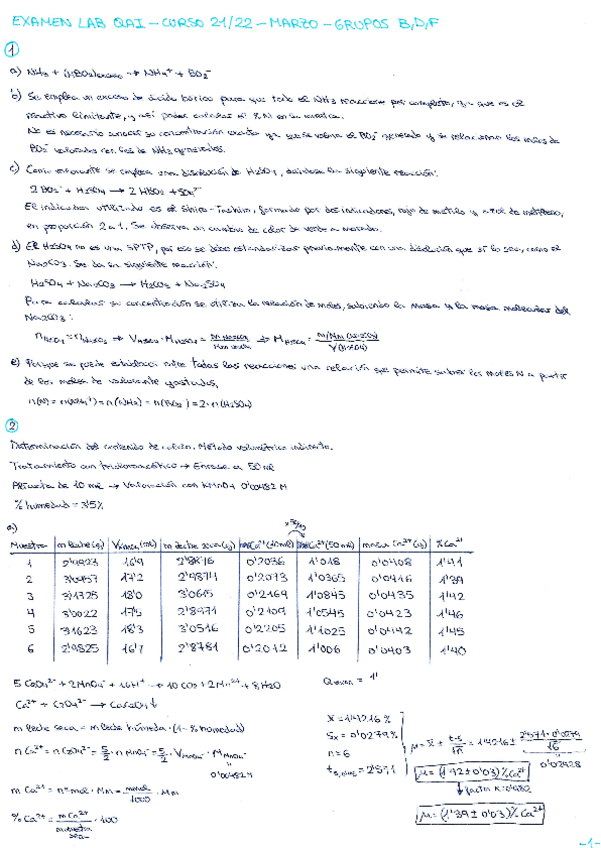 EXAMEN LAB QAI - CURSO 21/22 - MARZO - GRUPOS B, D, F
1
a) NH3 + HBO2 exceso → NH4+ + BO2-
b) Se emplea un exceso de ácido bórico para que todo el NH3 reaccione por completo, ya que es el
reactivo limitante, y así poder calcular el % N en la muestra.
No es necesario conocer su concentración exacta ya que se valora el BO2- generado y se relacionan los moles de
BO2- valorados con los de NH3 generados.
c) Como valorante se emplea una disolución de H2SO4, dándose la siguiente reacción:
2 BO2- + H2SO4 → 2 HBO2 + SO4 2-
El indicador utilizado es el Shiro-Tashiro, formado por dos indicadores, rojo de metilo y azul de metileno,
en proporción 2 a 1. Se observa un cambio de color de verde a morado.
d) El H2SO4 no es una SPTP, por eso se debe estandarizar previamente con una disolución que sí lo sea, como el
Na2CO3. Se da la siguiente reacción:
H2SO4 + Na2CO3 → H2CO3 + Na2SO4
Para calcular su concentración se utiliza la relación de moles, sabiendo la masa y la masa molecular del
Na2CO3:
e) Porque se puede establecer entre todas las reacciones una relación que permite saber los moles N a partir
de los moles de valorante gastados,
n(N) = n(NH4+) = n(NH3) = n(BO2-) = 2·n(H2SO4)
2
Determinación del contenido de calcio. Método volumétrico indirecto.
Tratamiento con tricloroacético → Enrase a 50 ml
Alícuota de 10 ml → Valoración con KMnO4 0'00482 M
% humedad = 3'5%
a)
Muestra | m leche (g) | V KMnO4 (ml) | m leche seca (g) | Ca2+ (10ml) | Ca2+ (50ml) | masa Ca2+ (g) | % Ca2+
1 | 2'9923 | 16'9 | 2'8876 | 0'2036 | 1'018 | 0'0408 | 1'41
2 | 17'2 | 2'9874 | 0'2073 | 1'0365 | 0'0416 | 1'39
3 | 3'1725 | 18'0 | 3'0615 | 0'2169 | 1'0845 | 0'0435 | 1'42
4 | 3'0022 | 17'5 | 2'8971 | 0'2109 | 1'0545 | 0'0423 | 1'46
5 | 3'1623 | 18'3 | 3'0516 | 0'2205 | 1'1025 | 0'0442 | 1'45
6 | 2'9825 | 16'7 | 2'8781 | 0'2012 | 1'006 | 0'0403 | 1'40
5 C2O4 2- + 2 MnO4- + 16 H+ → 10 CO2 + 2 Mn2+ + 8 H2O
Ca2+ + C2O4 2- → CaC2O4 ↓
m leche seca = m leche húmeda · (1 - % humedad)
n Ca2+ = n C2O4 2- = 5/2 · n MnO4- = 5/2 · V MnO4- · M MnO4-
0'00482 M
m Ca2+ = nº mol · Mm = mmol/1000 · Mm
% Ca2+ = m Ca2+ / m muestra seca · 100
x̄ = 1'4216 %
Sx = 0'0279 %
n = 6
t = 2'571
μ = x̄ ± t·s/√n = 1'4216 ± 2'571·0'0279/√6
0'02928
μ = (1'42 ± 0'03) % Ca2+
μ = (1'39 ± 0'03) % Ca2+
-1-